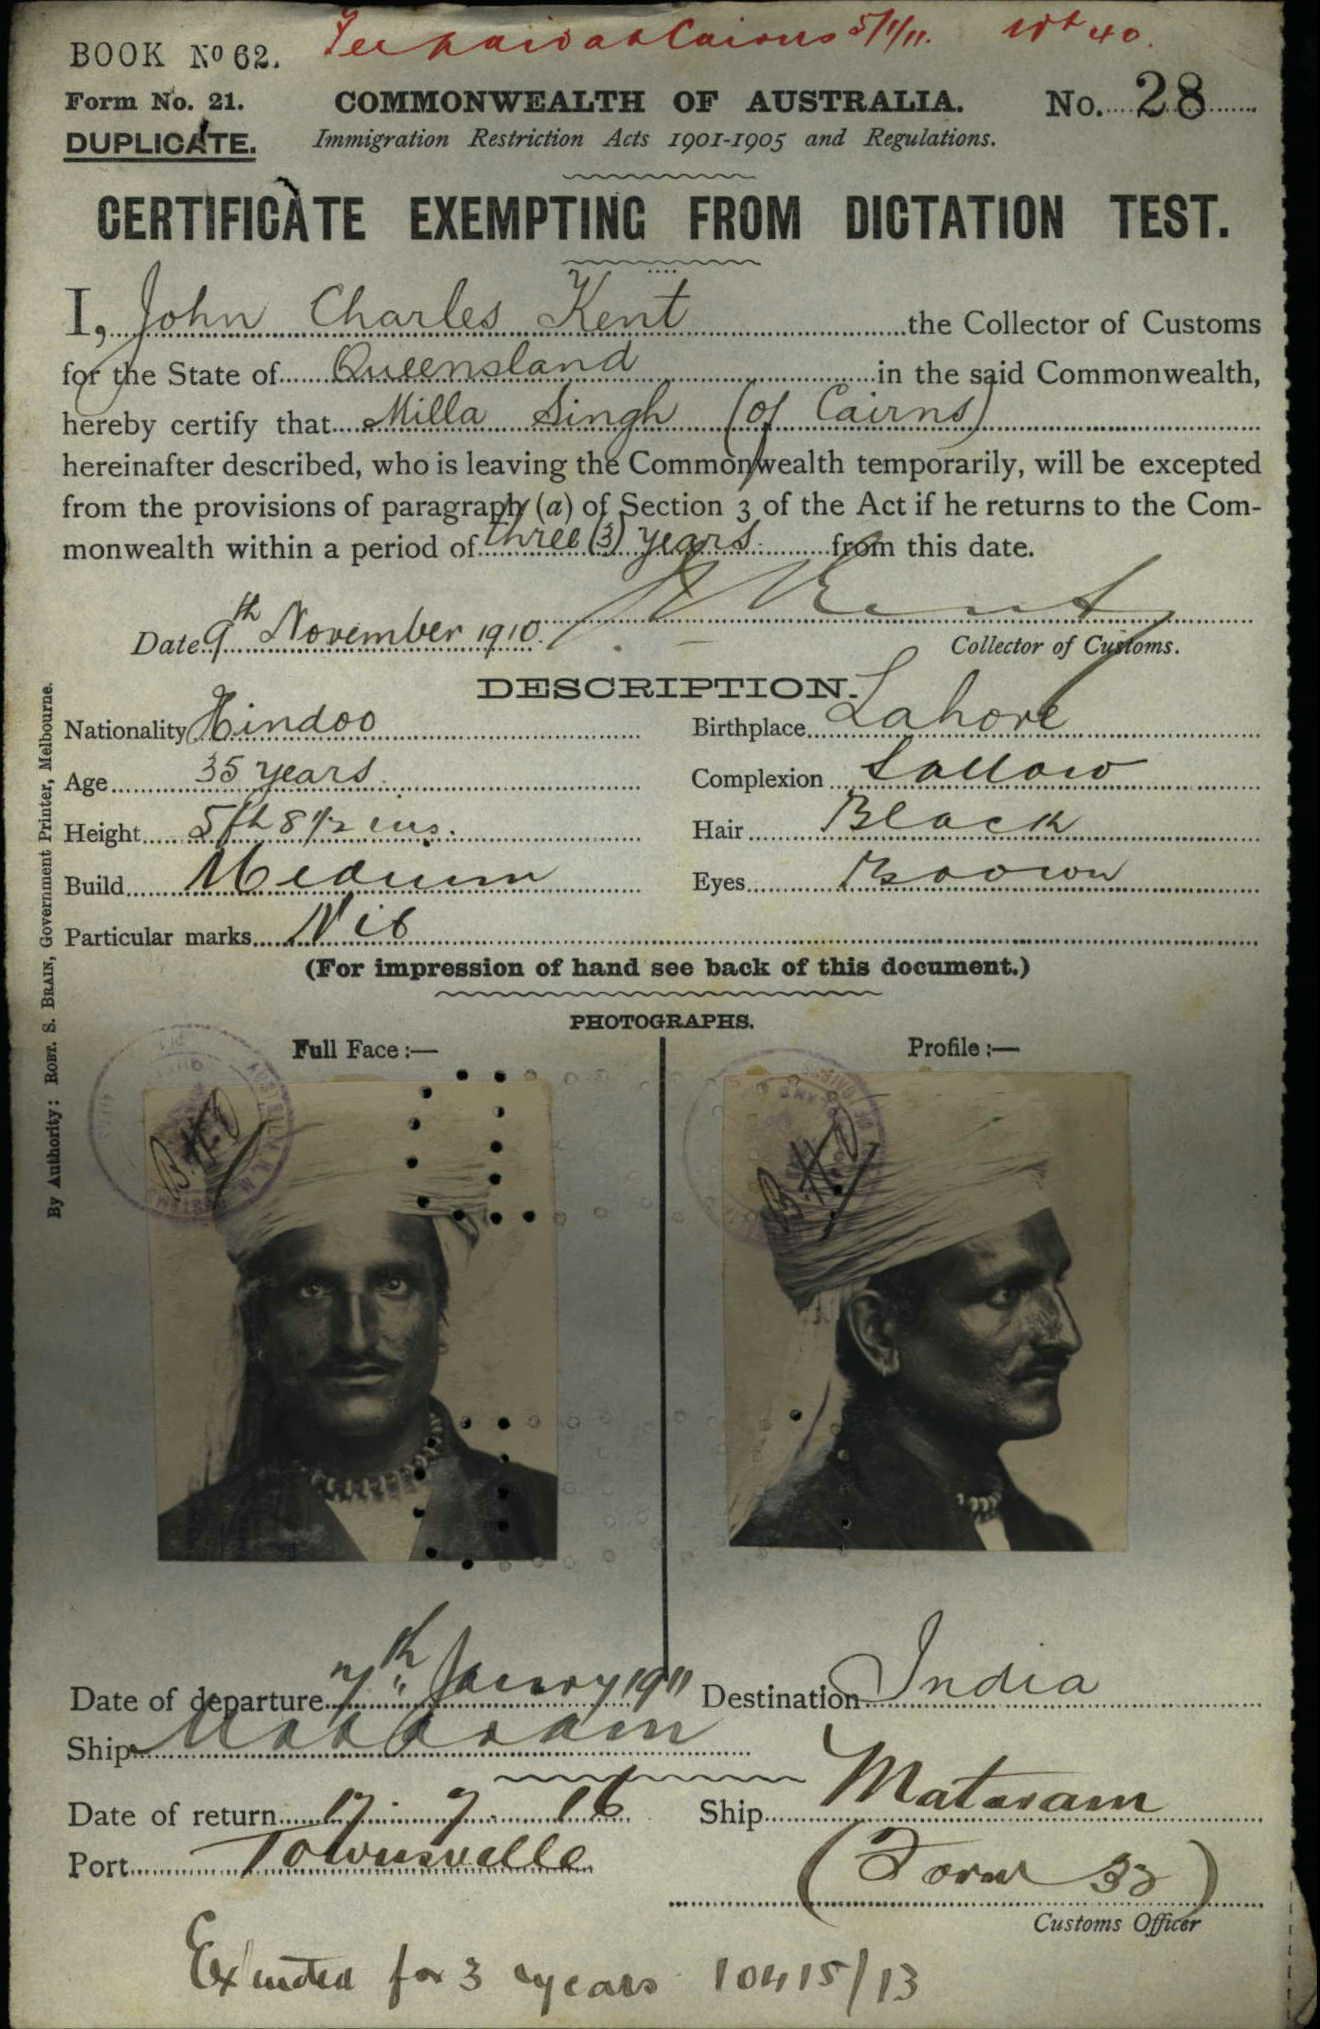 Fee paid at Cairns 5/1/11. Wt 40.
BOOK No 62.
Form No. 21. COMMONWEALTH OF AUSTRALIA. No. 28
DUPLICATE. Immigration Restriction Acts 1901-1905 and Regulations.
CERTIFICATE EXEMPTING FROM DICTATION TEST.
I, John Charles Kent the Collector of Customs
for the State of Queensland in the said Commonwealth,
hereby certify that Milla Singh (of Cairns)
hereinafter described, who is leaving the Commonwealth temporarily, will be excepted
from the provisions of paragraph (a) of Section 3 of the Act if he returns to the Com-
monwealth within a period of three (3) years from this date.
Kent
Date 9th November 1910. Collector of Customs.
DESCRIPTION.
Nationality Hindoo Birthplace Lahore
Age 35 years Complexion Sallow
Height 5ft 8 1/2 ins. Hair Black
Build Medium Eyes Brown
Particular marks Nil
(For impression of hand see back of this document.)
PHOTOGRAPHS.
Full Face :— Profile :—
Date of departure 7th Janury 1911 Destination India
Ship Mataram
Date of return 17. 7. 16 Ship Mataram
Port Townsville (Form 32)
Customs Officer
Extended for 3 years 10415/13
By Authority: ROBT. S. BRAIN, Government Printer, Melbourne.